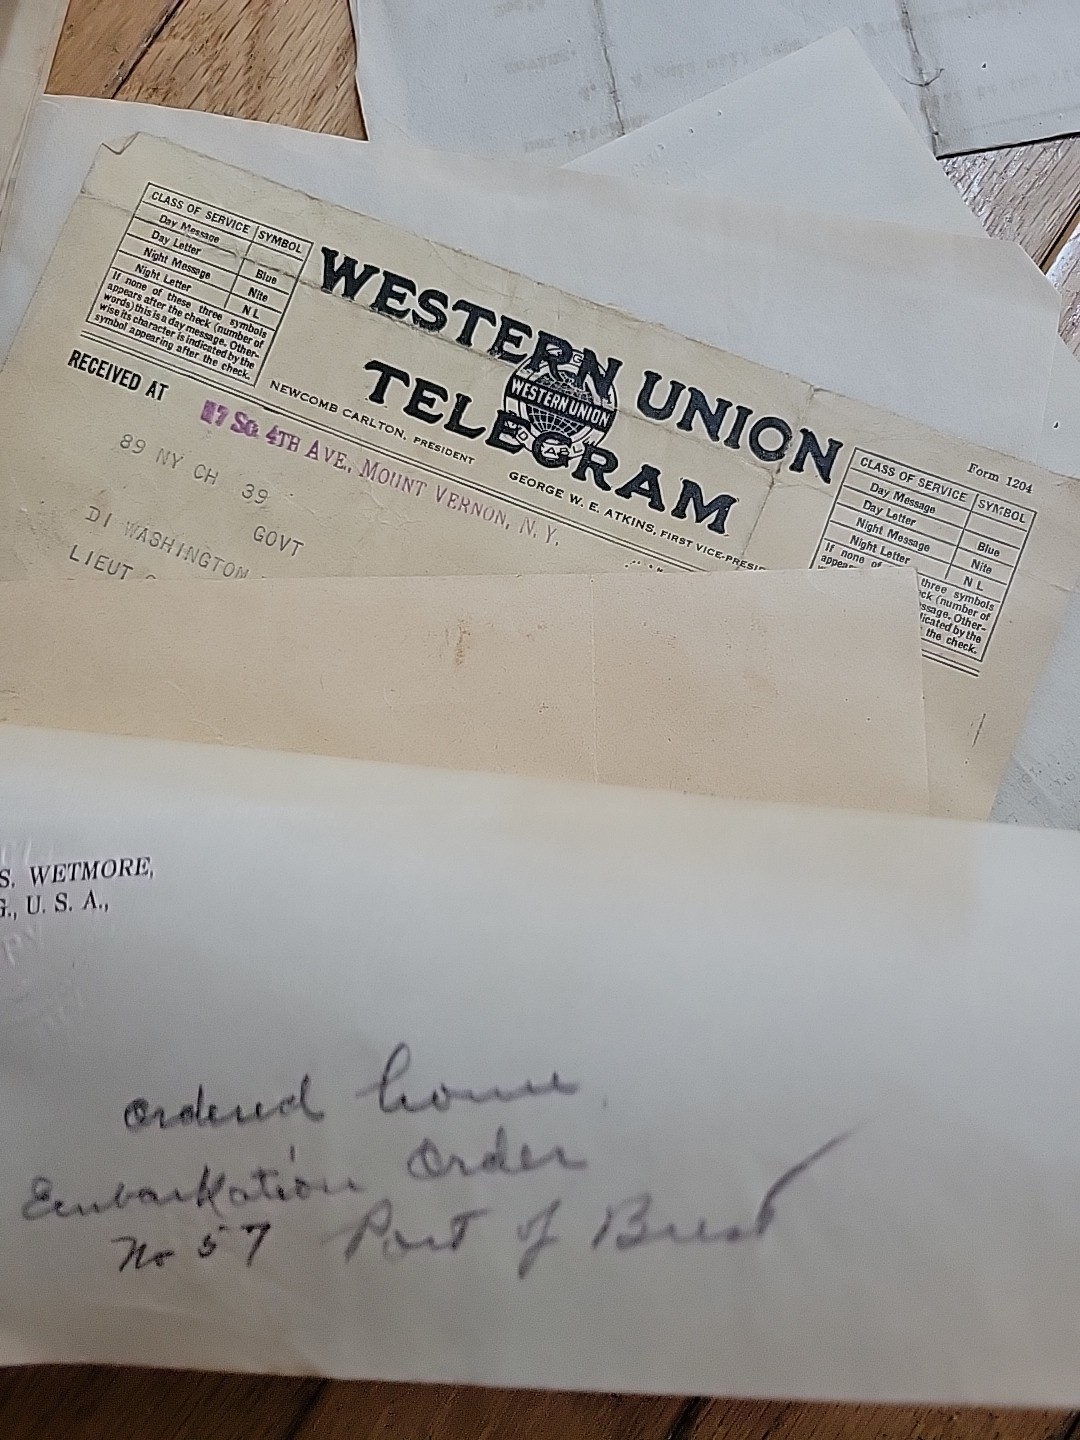 CLASS OF SERVICE SYMBOL
Day Message
Day Letter Blue
Night Message Nite
Night Letter N L
If none of these three symbols
appears after the check (number of
words) this is a day message. Other-
wise its character is indicated by the
symbol appearing after the check.
WESTERN UNION
TELEGRAM
WESTERN UNION
NEWCOMB CARLTON, PRESIDENT
GEORGE W. E. ATKINS, FIRST VICE-PRESI
Form 1204
CLASS OF SERVICE SYMBOL
Day Message
Day Letter Blue
Night Message Nite
Night Letter N L
If none of three symbols
appea ck (number of
ssage. Other-
icated by the
the check.
RECEIVED AT
17 So. 4TH AVE., MOUNT VERNON, N. Y.
89 NY CH 39
GOVT
DI WASHINGTON
LIEUT
S. WETMORE,
G., U. S. A.,
ordered home
Embarkation Order
No 57 Port of Brest